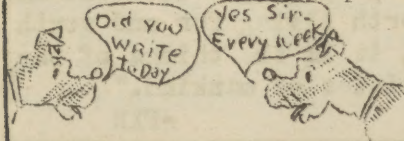 Did you
WRiTE
today
Yes Sir-
EVery Week